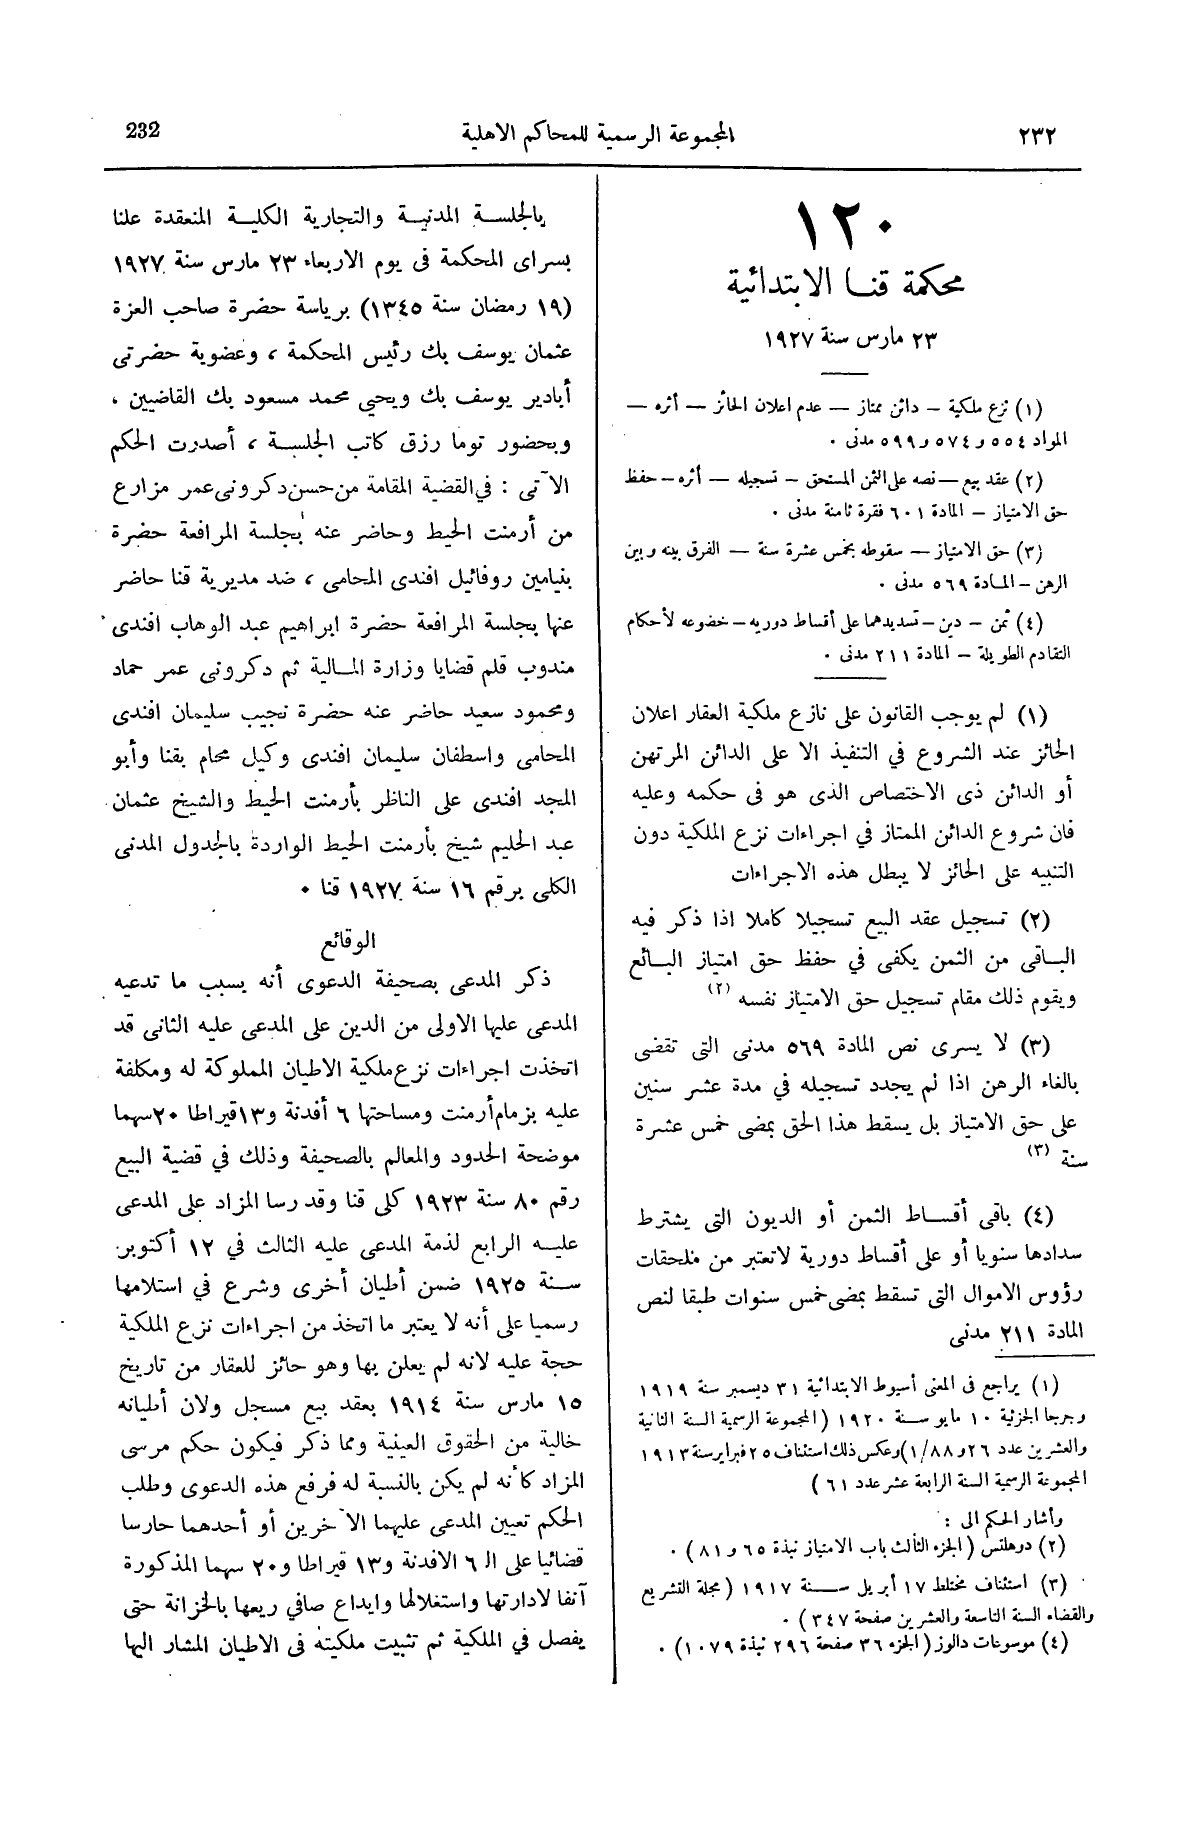 ٢٣٢
المجموعة الرسمية للمحاكم الاهلية
232
١٢٠
محكمة قنا الابتدائية
٢٣ مارس سنة ١٩٢٧
(١) نزع ملكية – دائن ممتاز – عدم اعلان الحائز – أثره –
المواد ٥٥٤ و ٥٧٤ و ٥٩٩ مدنى .
(٢) عقد بيع – نصه على الثمن المستحق – تسجيله – أثره – حفظ
حق الامتياز – المادة ٦٠١ فقرة ثامنة مدنى .
(٣) حق الامتياز – سقوطه بخمس عشرة سنة – الفرق بينه وبين
الرهن – المادة ٥٦٩ مدنى .
(٤) ثمن – دين – تسديدهما على أقساط دوريه – خضوعه لأحكام
التقادم الطويلة – المادة ٢١١ مدنى .
(١) لم يوجب القانون على نازع ملكية العقار اعلان
الحائز عند الشروع في التنفيذ الا على الدائن المرتهن
أو الدائن ذى الاختصاص الذى هو فى حكمه وعليه
فان شروع الدائن الممتاز في اجراءات نزع الملكية دون
التنبيه على الحائز لا يبطل هذه الاجراءات
(٢) تسجيل عقد البيع تسجيلا كاملا اذا ذكر فيه
الباقى من الثمن يكفى في حفظ حق امتياز البائع
ويقوم ذلك مقام تسجيل حق الامتياز نفسه (٢)
(٣) لا يسرى نص المادة ٥٦٩ مدنى التى تقضى
بالغاء الرهن اذا لم يجدد تسجيله في مدة عشر سنين
على حق الامتياز بل يسقط هذا الحق بمضى خمس عشرة
سنة (٣)
(٤) باقى أقساط الثمن أو الديون التى يشترط
سدادها سنويا أو على أقساط دورية لاتعتبر من ملحقات
رؤوس الاموال التى تسقط بمضى خمس سنوات طبقا لنص
المادة ٢١١ مدنى
(١) يراجع فى المعنى أسيوط الابتدائية ٣١ ديسمبر سنة ١٩١٩
وجرجا الجزئية ١٠ مايو سنة ١٩٢٠ (المجموعة الرسمية السنة الثانية
والعشرين عدد ٢٦ و ١/٨٨) وعكس ذلك استئناف ٢٥ فبراير سنة ١٩١٣
المجموعة الرسمية السنة الرابعة عشر عدد ٦١ )
وأشار الحكم الى :
(٢) دوهلتس (الجزء الثالث باب الامتياز نبذة ٦٥ و ٨١) .
(٣) استئناف مختلط ١٧ أبريل سنة ١٩١٧ (مجلة التشريع
والقضاء السنة التاسعة والعشرين صفحة ٣٤٧) .
(٤) موسوعات دالوز (الجزء ٣٦ صفحة ٢٩٦ نبذة ١٠٧٩) .
بالجلسة المدنية والتجارية الكلية المنعقدة علنا
بسراى المحكمة فى يوم الاربعاء ٢٣ مارس سنة ١٩٢٧
(١٩ رمضان سنة ١٣٤٥) برياسة حضرة صاحب العزة
عثمان يوسف بك رئيس المحكمة ، وعضوية حضرتى
أبادير يوسف بك ويحيى محمد مسعود بك القاضيين ،
وبحضور توما رزق كاتب الجلسة ، أصدرت الحكم
الآتى : في القضية المقامة من حسن دكرونى عمر مزارع
من أرمنت الحيط وحاضر عنه بجلسة المرافعة حضرة
بنيامين روفائيل افندى المحامى ، ضد مديرية قنا حاضر
عنها بجلسة المرافعة حضرة ابراهيم عبد الوهاب افندى
مندوب قلم قضايا وزارة المالية ثم دكرونى عمر حماد
ومحمود سعيد حاضر عنه حضرة نجيب سليمان افندى
المحامى واسطفان سليمان افندى وكيل محام بقنا وأبو
المجد افندى على الناظر بأرمنت الحيط والشيخ عثمان
عبد الحليم شيخ بأرمنت الحيط الواردة بالجدول المدنى
الكلى برقم ١٦ سنة ١٩٢٧ قنا .
الوقائع
ذكر المدعى بصحيفة الدعوى أنه بسبب ما تدعيه
المدعى عليها الاولى من الدين على المدعى عليه الثانى قد
اتخذت اجراءات نزع ملكية الاطيان المملوكة له ومكلفة
عليه بزمام أرمنت ومساحتها ٦ أفدنة و١٣ قيراطا ٢٠ سهما
موضحة الحدود والمعالم بالصحيفة وذلك في قضية البيع
رقم ٨٠ سنة ١٩٢٣ كلى قنا وقد رسا المزاد على المدعى
عليه الرابع لذمة المدعى عليه الثالث في ١٢ أكتوبر
سنة ١٩٢٥ ضمن أطيان أخرى وشرع في استلامها
رسميا على أنه لا يعتبر ما اتخذ من اجراءات نزع الملكية
حجة عليه لانه لم يعلن بها وهو حائز للعقار من تاريخ
١٥ مارس سنة ١٩١٤ بعقد بيع مسجل ولان أطيانه
خالية من الحقوق العينية ومما ذكر فيكون حكم مرسى
المزاد كأنه لم يكن بالنسبة له فرفع هذه الدعوى وطلب
الحكم تعيين المدعى عليهما الآخرين أو أحدهما حارسا
قضائيا على الـ ٦ الافدنة و١٣ قيراطا و٢٠ سهما المذكورة
آنفا لادارتها واستغلالها وايداع صافي ريعها بالخزانة حتى
يفصل في الملكية ثم تثبيت ملكيته فى الاطيان المشار اليها